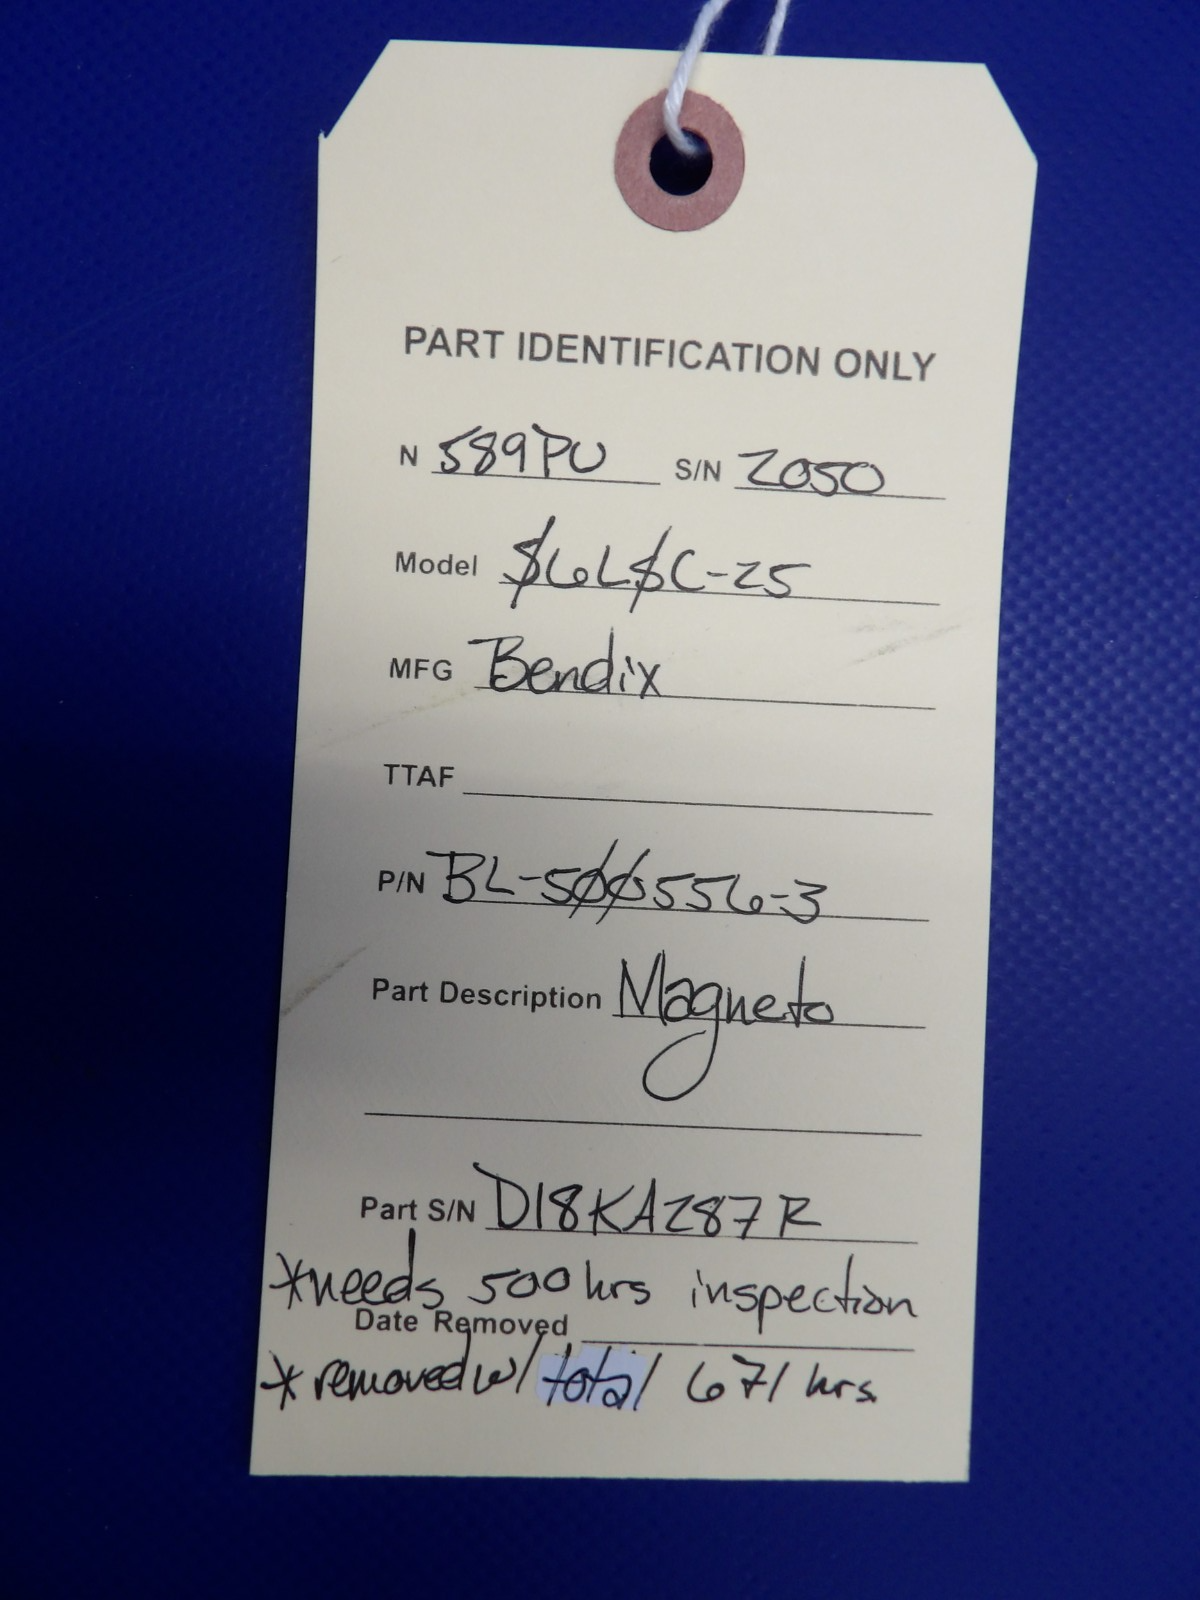 PART IDENTIFICATION ONLY
N 589PU S/N 2050
Model $6L$C-25
MFG Bendix
TTAF
P/N BL-5ØØ556-3
Part Description Magneto
Part S/N D18KA287R
*needs 500hrs inspection
Date Removed
*removed w/ total 671 hrs.